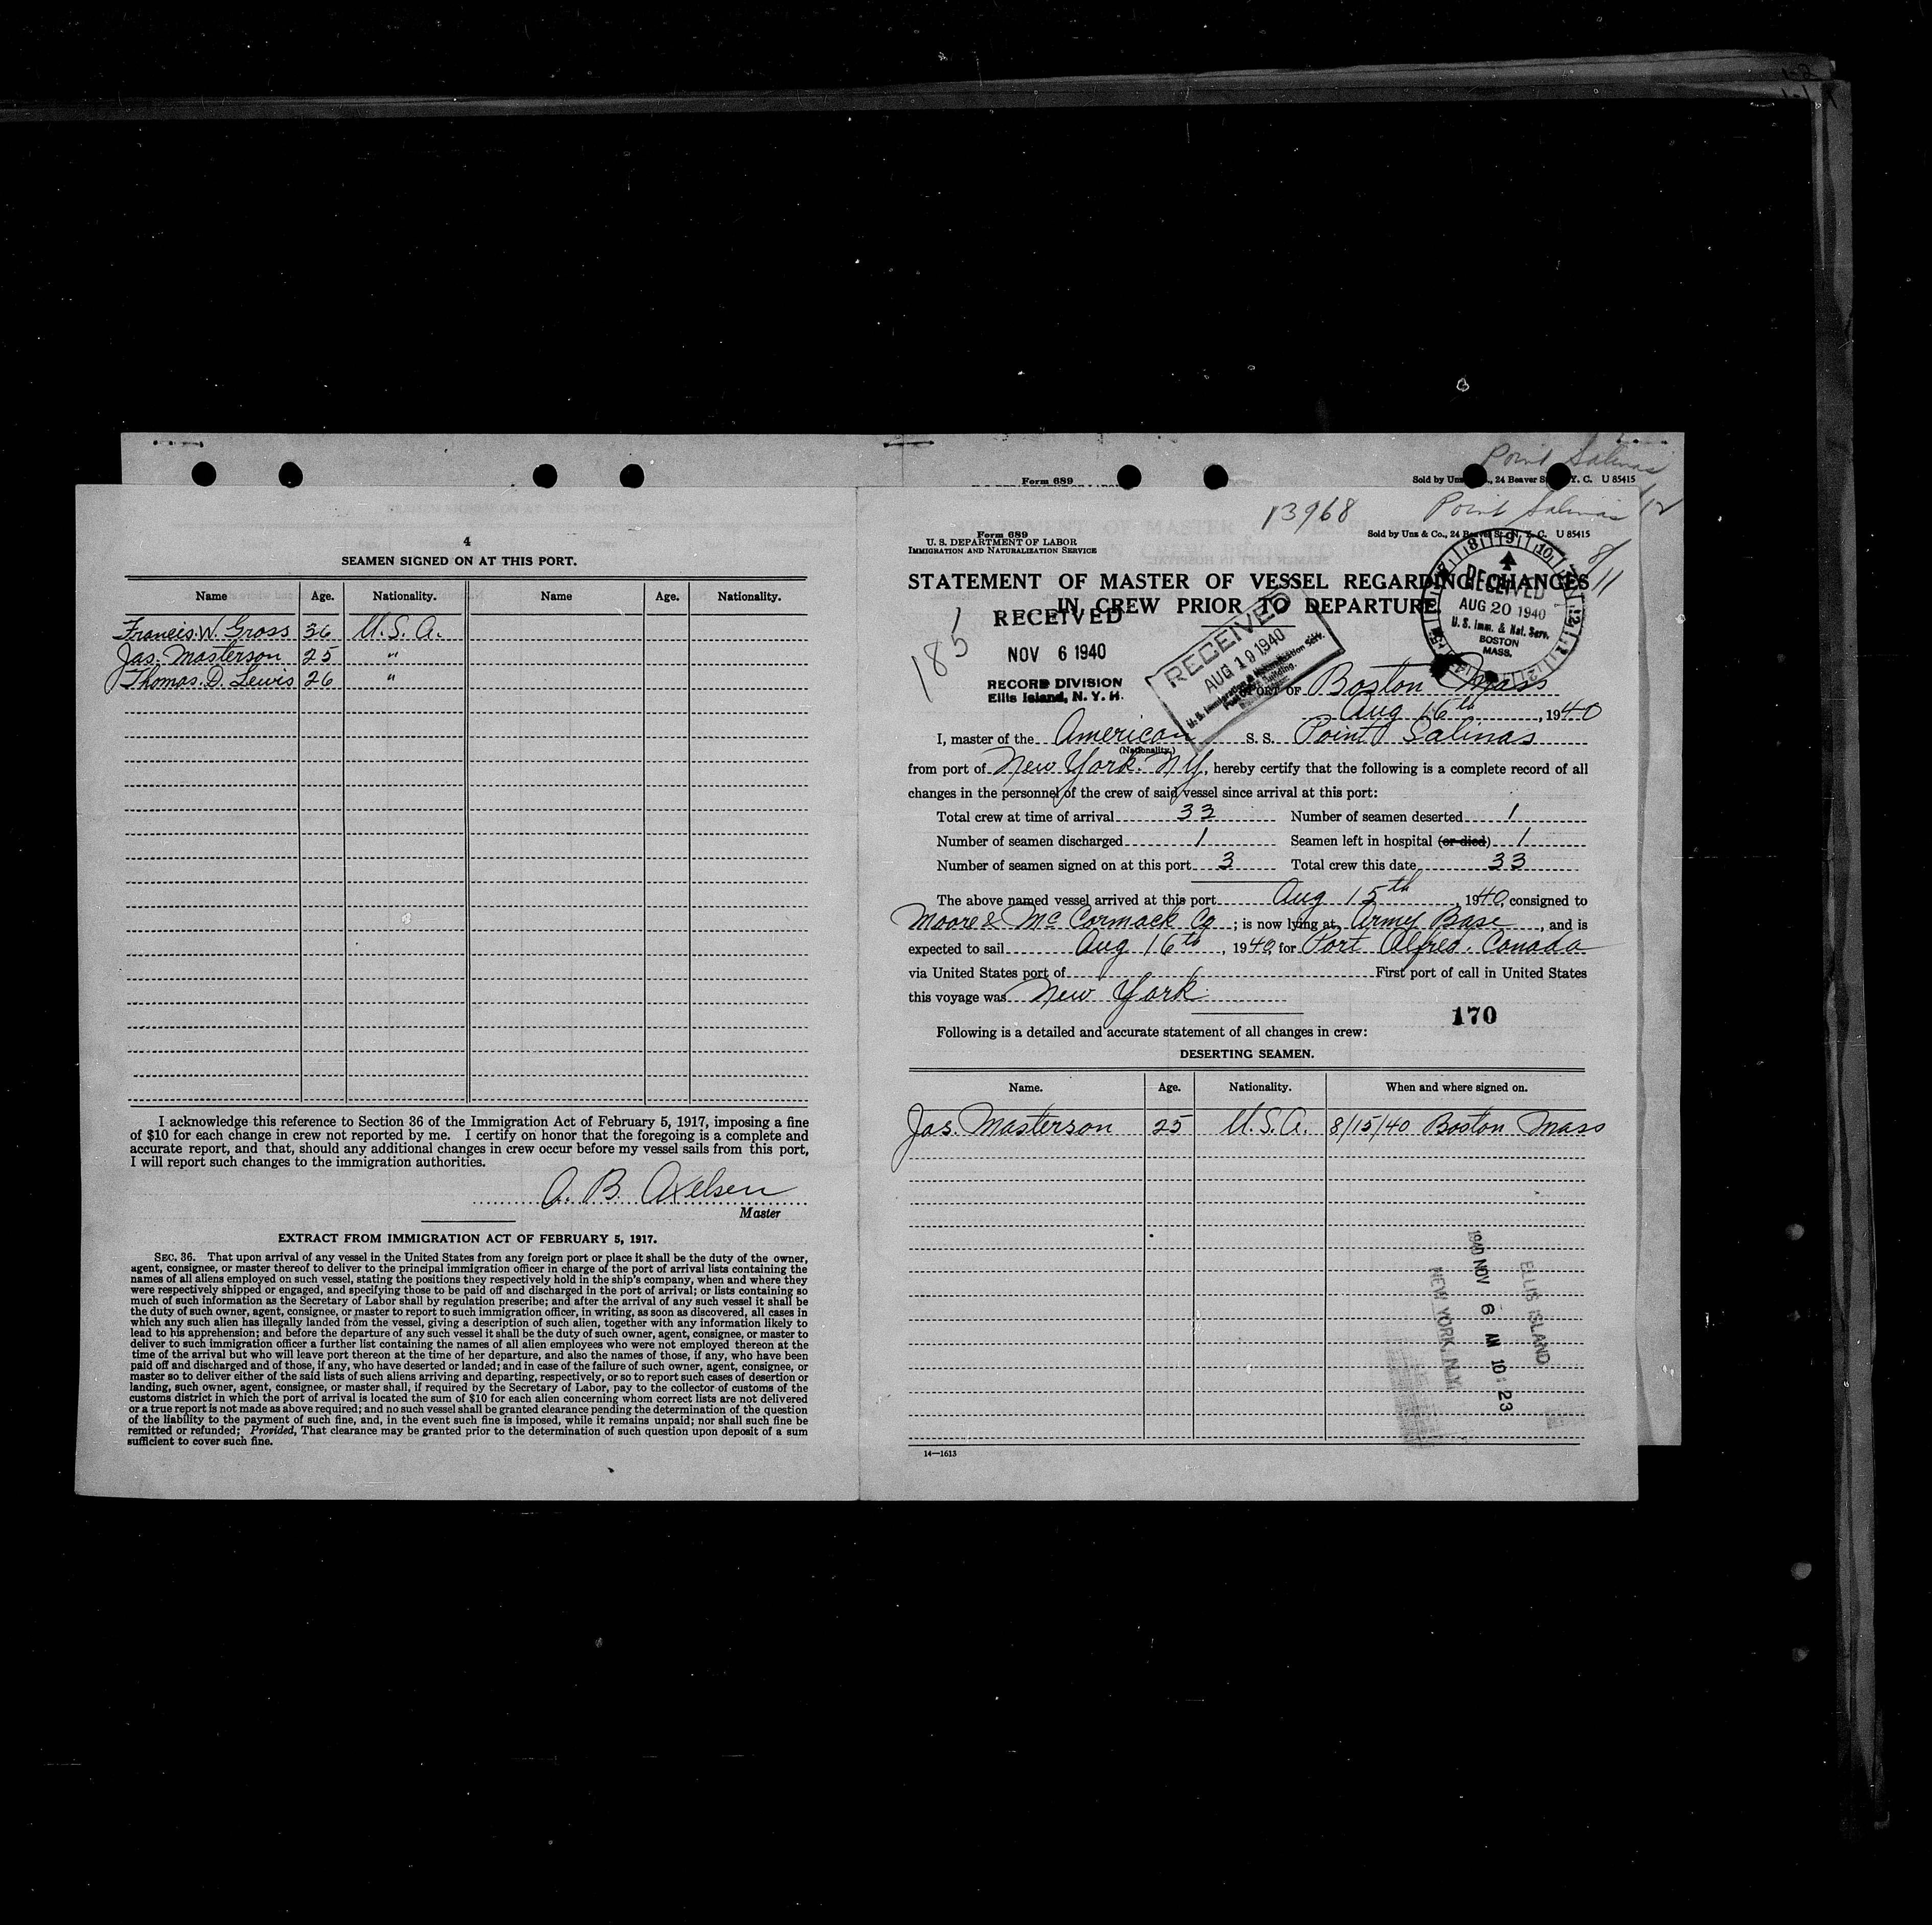 4
SEAMEN SIGNED ON AT THIS PORT.
Name Age. Nationality. Name Age. Nationality.
Francis. W. Gross 36 U.S.A.
Jas. Masterson 25 "
Thomas. D. Lewis 26 "
I acknowledge this reference to Section 36 of the Immigration Act of February 5, 1917, imposing a fine
of $10 for each change in crew not reported by me. I certify on honor that the foregoing is a complete and
accurate report, and that, should any additional changes in crew occur before my vessel sails from this port,
I will report such changes to the immigration authorities.
A. B. Axelsen
Master
EXTRACT FROM IMMIGRATION ACT OF FEBRUARY 5, 1917.
SEC. 36. That upon arrival of any vessel in the United States from any foreign port or place it shall be the duty of the owner,
agent, consignee, or master thereof to deliver to the principal immigration officer in charge of the port of arrival lists containing the
names of all aliens employed on such vessel, stating the positions they respectively hold in the ship's company, when and where they
were respectively shipped or engaged, and specifying those to be paid off and discharged in the port of arrival; or lists containing so
much of such information as the Secretary of Labor shall by regulation prescribe; and after the arrival of any such vessel it shall be
the duty of such owner, agent, consignee, or master to report to such immigration officer, in writing, as soon as discovered, all cases in
which any such alien has illegally landed from the vessel, giving a description of such alien, together with any information likely to
lead to his apprehension; and before the departure of any such vessel it shall be the duty of such owner, agent, consignee, or master to
deliver to such immigration officer a further list containing the names of all alien employees who were not employed thereon at the
time of the arrival but who will leave port thereon at the time of her departure, and also the names of those, if any, who have been
paid off and discharged and of those, if any, who have deserted or landed; and in case of the failure of such owner, agent, consignee, or
master so to deliver either of the said lists of such aliens arriving and departing, respectively, or so to report such cases of desertion or
landing, such owner, agent, consignee, or master shall, if required by the Secretary of Labor, pay to the collector of customs of the
customs district in which the port of arrival is located the sum of $10 for each alien concerning whom correct lists are not delivered
or a true report is not made as above required; and no such vessel shall be granted clearance pending the determination of the question
of the liability to the payment of such fine, and, in the event such fine is imposed, while it remains unpaid; nor shall such fine be
remitted or refunded; Provided, That clearance may be granted prior to the determination of such question upon deposit of a sum
sufficient to cover such fine.
Point Salinas
Form 689
Sold by Unz , 24 Beaver S Y. C. U 85415
13968 Point Salinas 12
Form 689
Sold by Unz & Co., 24 Beaver St., N. Y. C. U 85415
U. S. DEPARTMENT OF LABOR
IMMIGRATION AND NATURALIZATION SERVICE
8/11
STATEMENT OF MASTER OF VESSEL REGARDING CHANGES
IN CREW PRIOR TO DEPARTURE
185
RECEIVED
NOV 6 1940
RECORD DIVISION
Ellis Island, N. Y. H.
RECEIVED
AUG 19 1940
U. S. Immigration & Naturalization Serv.
RECEIVED
AUG 20 1940
U. S. Imm. & Nat. Serv.
BOSTON
MASS.
PORT OF Boston Mass
Aug 16th, 1940
I, master of the American S. S. Point Salinas
(Nationality)
from port of New York. NY, hereby certify that the following is a complete record of all
changes in the personnel of the crew of said vessel since arrival at this port:
Total crew at time of arrival 33 Number of seamen deserted 1
Number of seamen discharged 1 Seamen left in hospital (or died) 1
Number of seamen signed on at this port 3 Total crew this date 33
The above named vessel arrived at this port Aug 15th 1940, consigned to
Moore & McCormack Co; is now lying at Army Base, and is
expected to sail Aug 16th, 1940, for Port Alfred. Canada
via United States port of First port of call in United States
this voyage was New York.
170
Following is a detailed and accurate statement of all changes in crew:
DESERTING SEAMEN.
Name. Age. Nationality. When and where signed on.
Jas. Masterson 25 U.S.A. 8/15/40 Boston Mass
ELLIS ISLAND
1940 NOV 6 AM 10:23
NEW YORK, N.Y.
14—1613